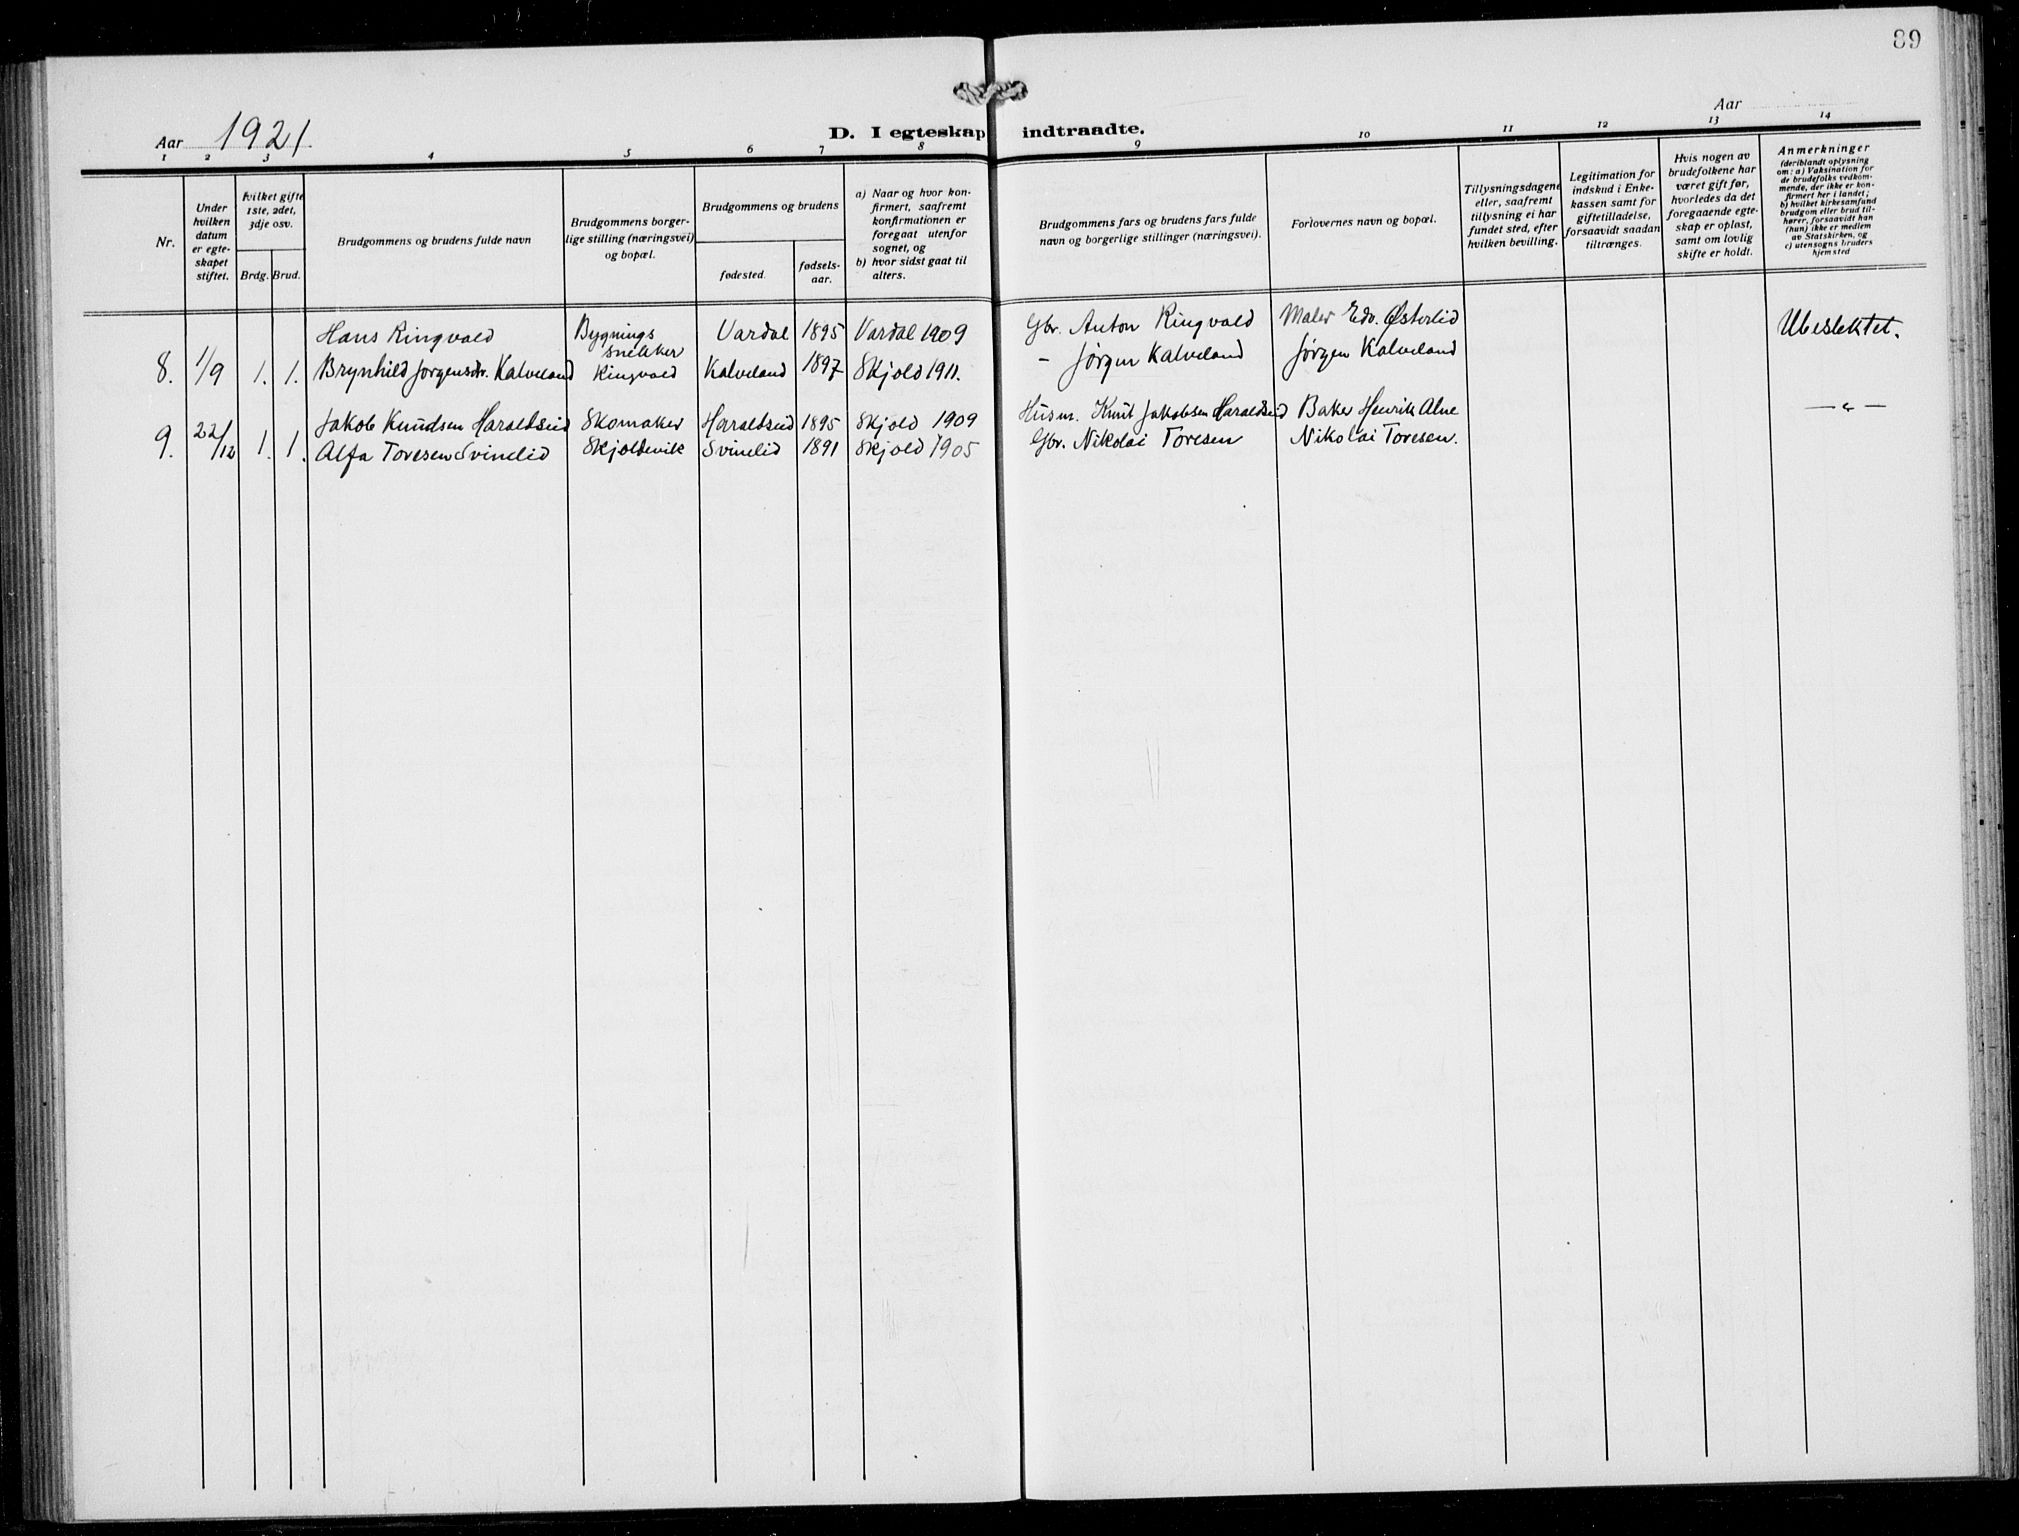 89
Aar 1921
D. I egteskap indtraadte.
Aar
1 2 3 4 5 6 7 8 9 10 11 12 13 14
Nr.
Under
hvilken
datum
er egte-
skapet
stiftet.
hvilket gifte
1ste, 2det,
3dje osv.
Brdg. Brud.
Brudgommens og brudens fulde navn
Brudgommens borger-
lige stilling (næringsvei)
og bopæl.
Brudgommens og brudens
fødested.
fødsels-
aar.
a) Naar og hvor kon-
firmert, saafremt
konfirmationen er
foregaat utenfor
sognet, og
b) hvor sidst gaat til
alters.
Brudgommens fars og brudens fars fulde
navn og borgerlige stillinger (næringsvei).
Forlovernes navn og bopæl.
Tillysningsdagene
eller, saafremt
tillysning ei har
fundet sted, efter
hvilken bevilling.
Legitimation for
indskud i Enke-
kassen samt for
giftetilladelse,
forsaavidt saadan
tiltrænges.
Hvis nogen av
brudefolkene har
været gift før,
hvorledes da det
foregaaende egte-
skap er opløst,
samt om lovlig
skifte er holdt.
Anmerkninger
(deriblandt oplysning
om: a) Vaksination for
de brudefolks vedkom-
mende, der ikke er kon-
firmert her i landet;
b) hvilket kirkesamfund
brudgom eller brud til-
hører, forsaavidt han
(hun) ikke er medlem
av Statskirken, og
c) utensogns bruders
hjemsted
Hans Ringvold Bygnings Vardal 1895 Vardal 1909 Gbr. Anton Ringvold Maler Edv. Østerlid Ubeslektet.
snekker
8. 1/9 1. 1. Brynhild Jørgensdr. Kalveland Ringvold Kalveland 1897 Skjold 1911. - Jørgen Kalveland Jørgen Kalveland
Jakob Knudsen Haraldseid Skomaker Haraldseid 1895 Skjold 1909 Husm. Knut Jakobsen Haraldseid Baker Henrik Alne — " —
9. 22/12 1. 1. Alfa Toresen Svinelid Skjoldevik Svinelid 1891 Skjold 1905 Gbr. Nikolai Toresen Nikolai Toresen.